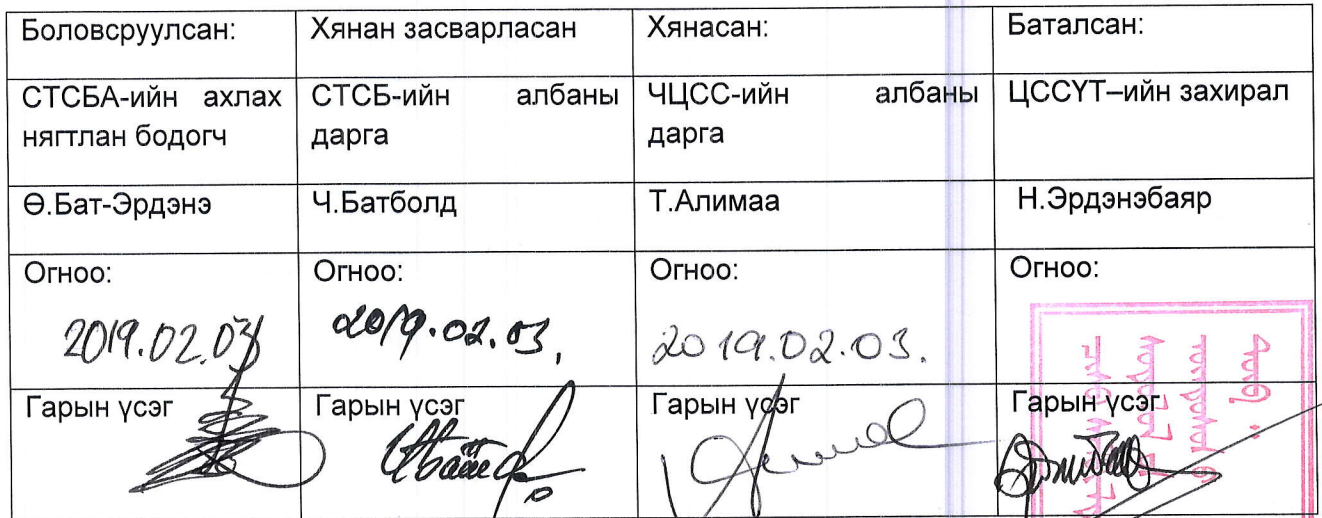 Боловсруулсан:
Хянан засварласан
Хянасан:
Баталсан:
СТСБА-ийн ахлах
нягтлан бодогч
СТСБ-ийн албаны
дарга
ЧЦСС-ийн албаны
дарга
ЦССҮТ–ийн захирал
Ө.Бат-Эрдэнэ
Ч.Батболд
Т.Алимаа
Н.Эрдэнэбаяр
Огноо:
2019.02.03
Огноо:
2019.02.03.
Огноо:
2019.02.03.
Огноо:
Гарын үсэг
Гарын үсэг
Гарын үсэг
Гарын үсэг